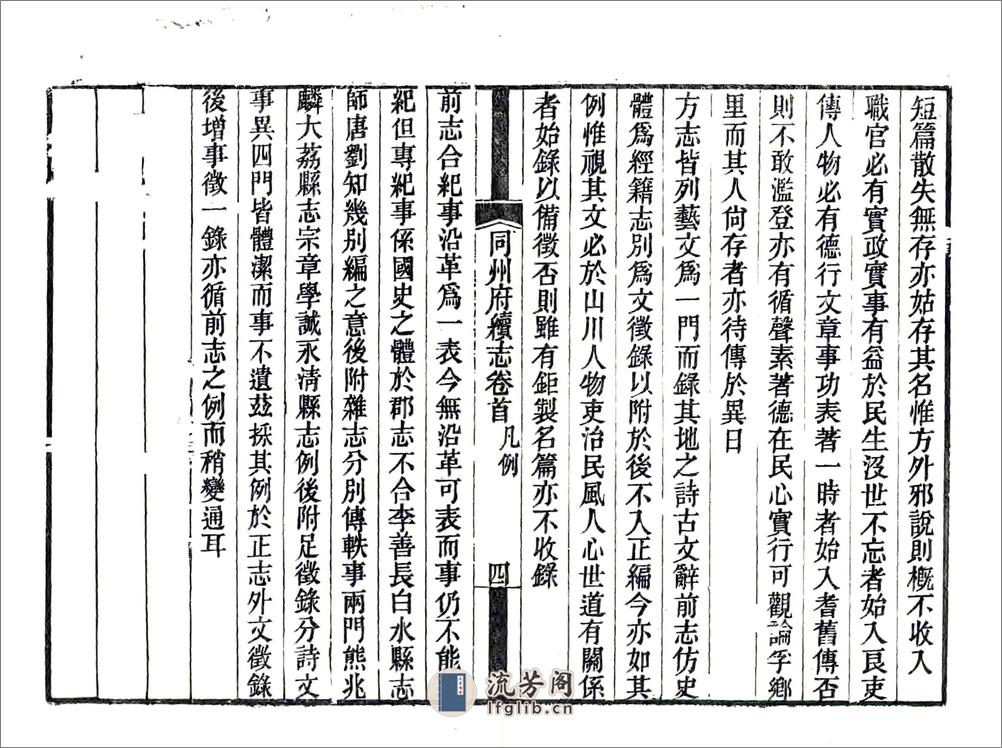 短篇散失無存亦姑存其名惟方外邪說則槪不收入
職官必有實政實事有益於民生沒世不忘者始入良吏
傳人物必有德行文章事功表著一時者始入耆舊傳否
則不敢濫登亦有循聲素著德在民心實行可觀論孚鄉
里而其人尙存者亦待傳於異日
方志皆列藝文爲一門而錄其地之詩古文辭前志仿史
體爲經籍志別爲文徵錄以附於後不入正編今亦如其
例惟視其文必於山川人物吏治民風人心世道有關係
者始錄以備徵否則雖有鉅製名篇亦不收錄
同州府續志卷首 凡例 四
前志合紀事沿革爲一表今無沿革可表而事仍不能
紀但專紀事係國史之體於郡志不合李善長白水縣志
師唐劉知幾別編之意後附雜志分別傳軼事兩門熊兆
麟大荔縣志宗章學誠永清縣志例後附足徵錄分詩文
事異四門皆體潔而事不遺玆採其例於正志外文徵錄
後增事徵一錄亦循前志之例而稍變通耳
流芳阁
lfglib.cn